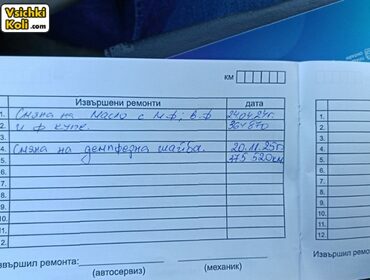 Vsichki
Koli.com
км
Извършени ремонти дата
1. Смяна на масло с м.ф; в.ф 24.04.24г.
2. и ф купе. 364870
3.
4. Смяна на демпферна шайба. 20.11.25г.
5. 375 520км
6.
7.
8.
9.
10.
11.
12.
Извършил ремонта:
(автосервиз) (механик)
1.
2.
3.
4.
5.
6.
7.
8.
9.
10.
11.
12.
Извършил